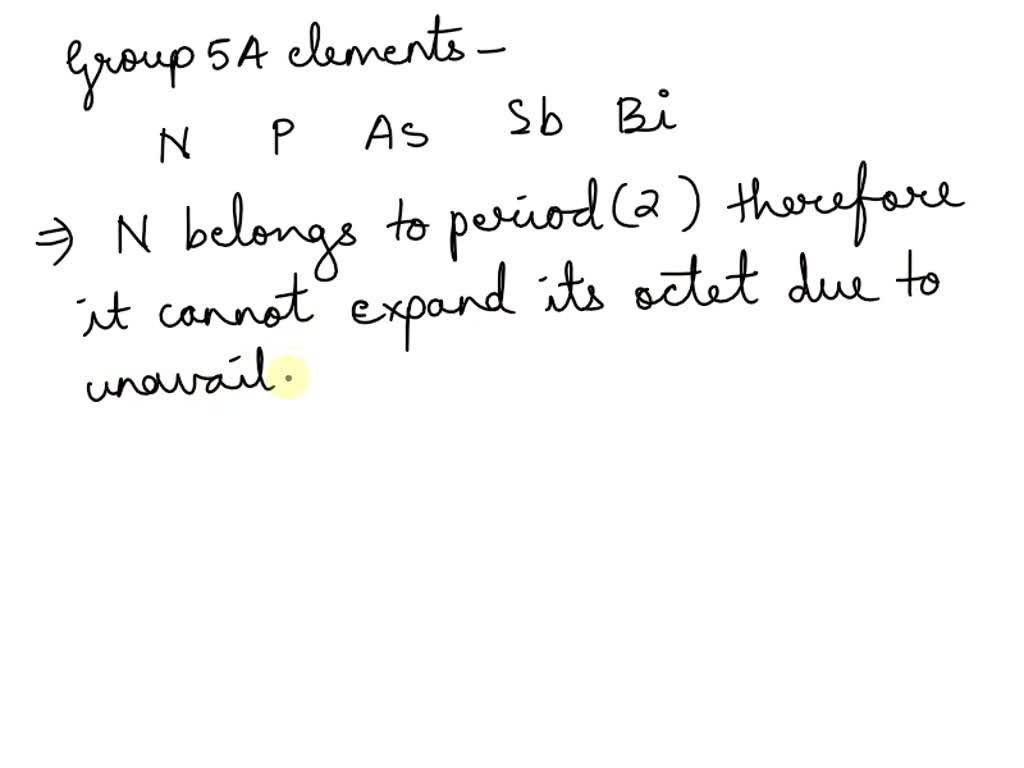 Group 5A elements -
N P As Sb Bi
⇒ N belongs to period (2) therefore
it cannot expand its octet due to
unavail